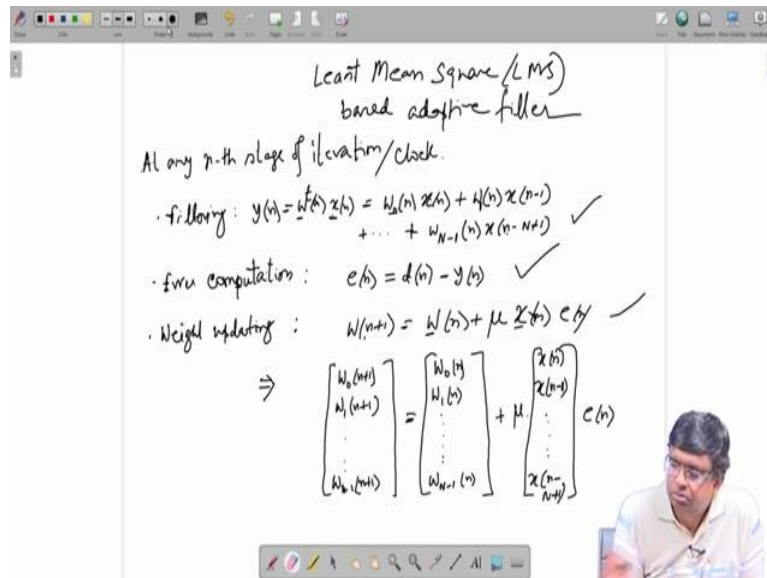 Least Mean Square (LMS)
based adaptive filter
At any n-th stage of iteration/clock.
· filtering: y(n) = w^t(n) x(n) = w_0(n) x(n) + w_1(n) x(n-1)
+ ··· + w_{N-1}(n) x(n-N+1) ✓
· error computation: e(n) = d(n) - y(n) ✓
· Weight updating: w(n+1) = w(n) + μ x(n) e(n) ✓
⇒ [w_0(n+1) w_1(n+1) ⋮ w_{N-1}(n+1)] = [w_0(n) w_1(n) ⋮ w_{N-1}(n)] + μ [x(n) x(n-1) ⋮ x(n-N+1)] e(n)